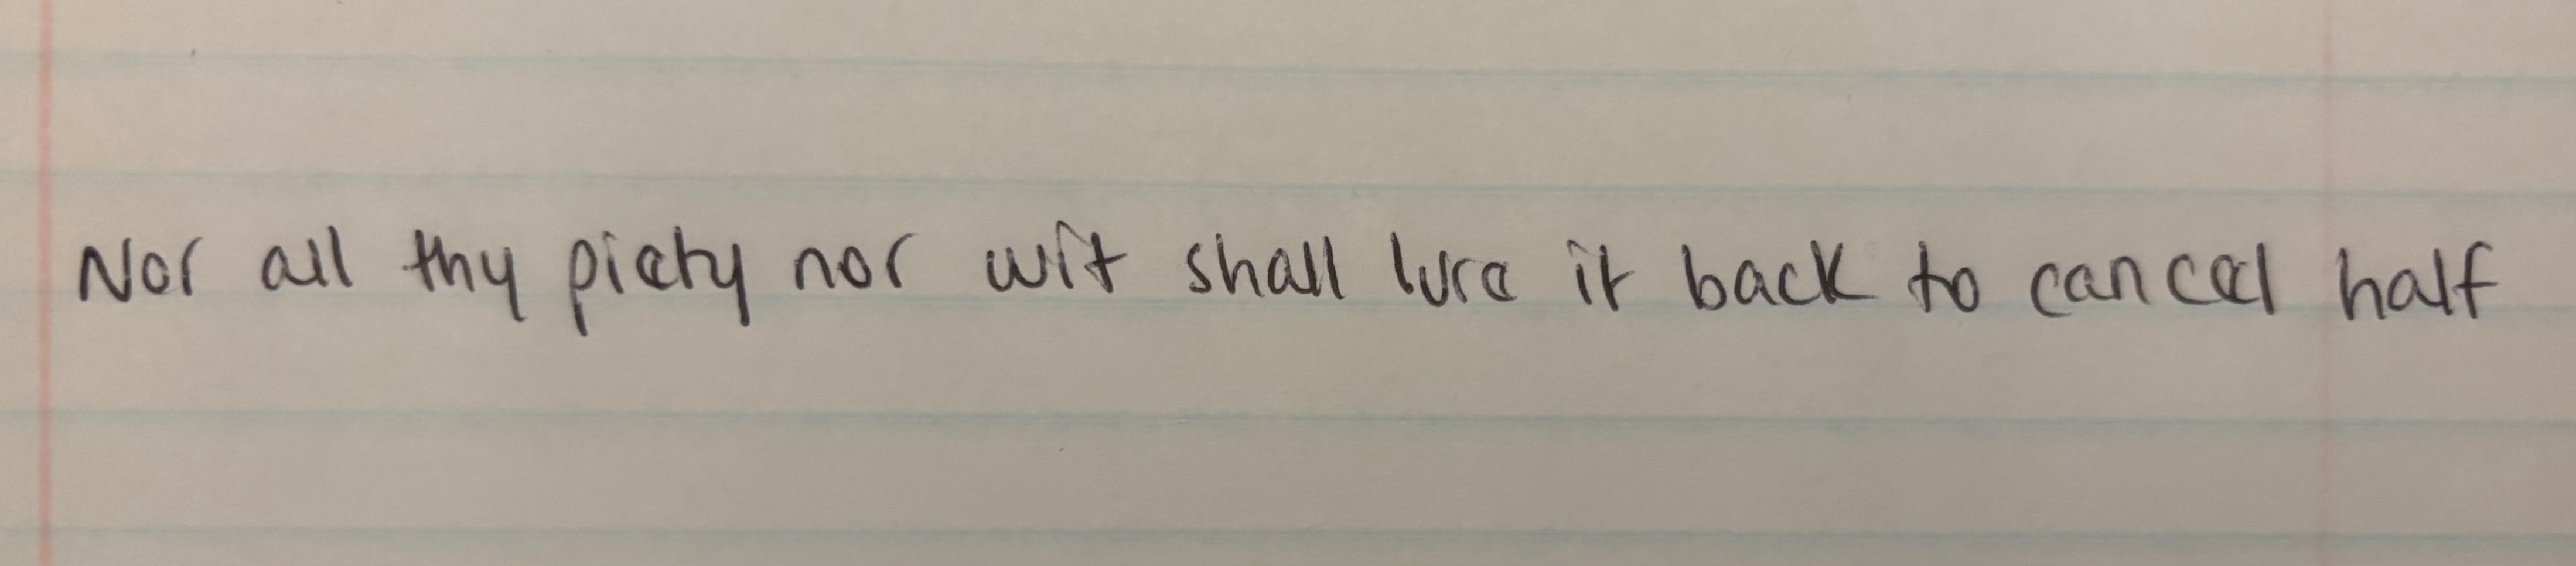 Nor all thy piety nor wit shall lure it back to cancel half